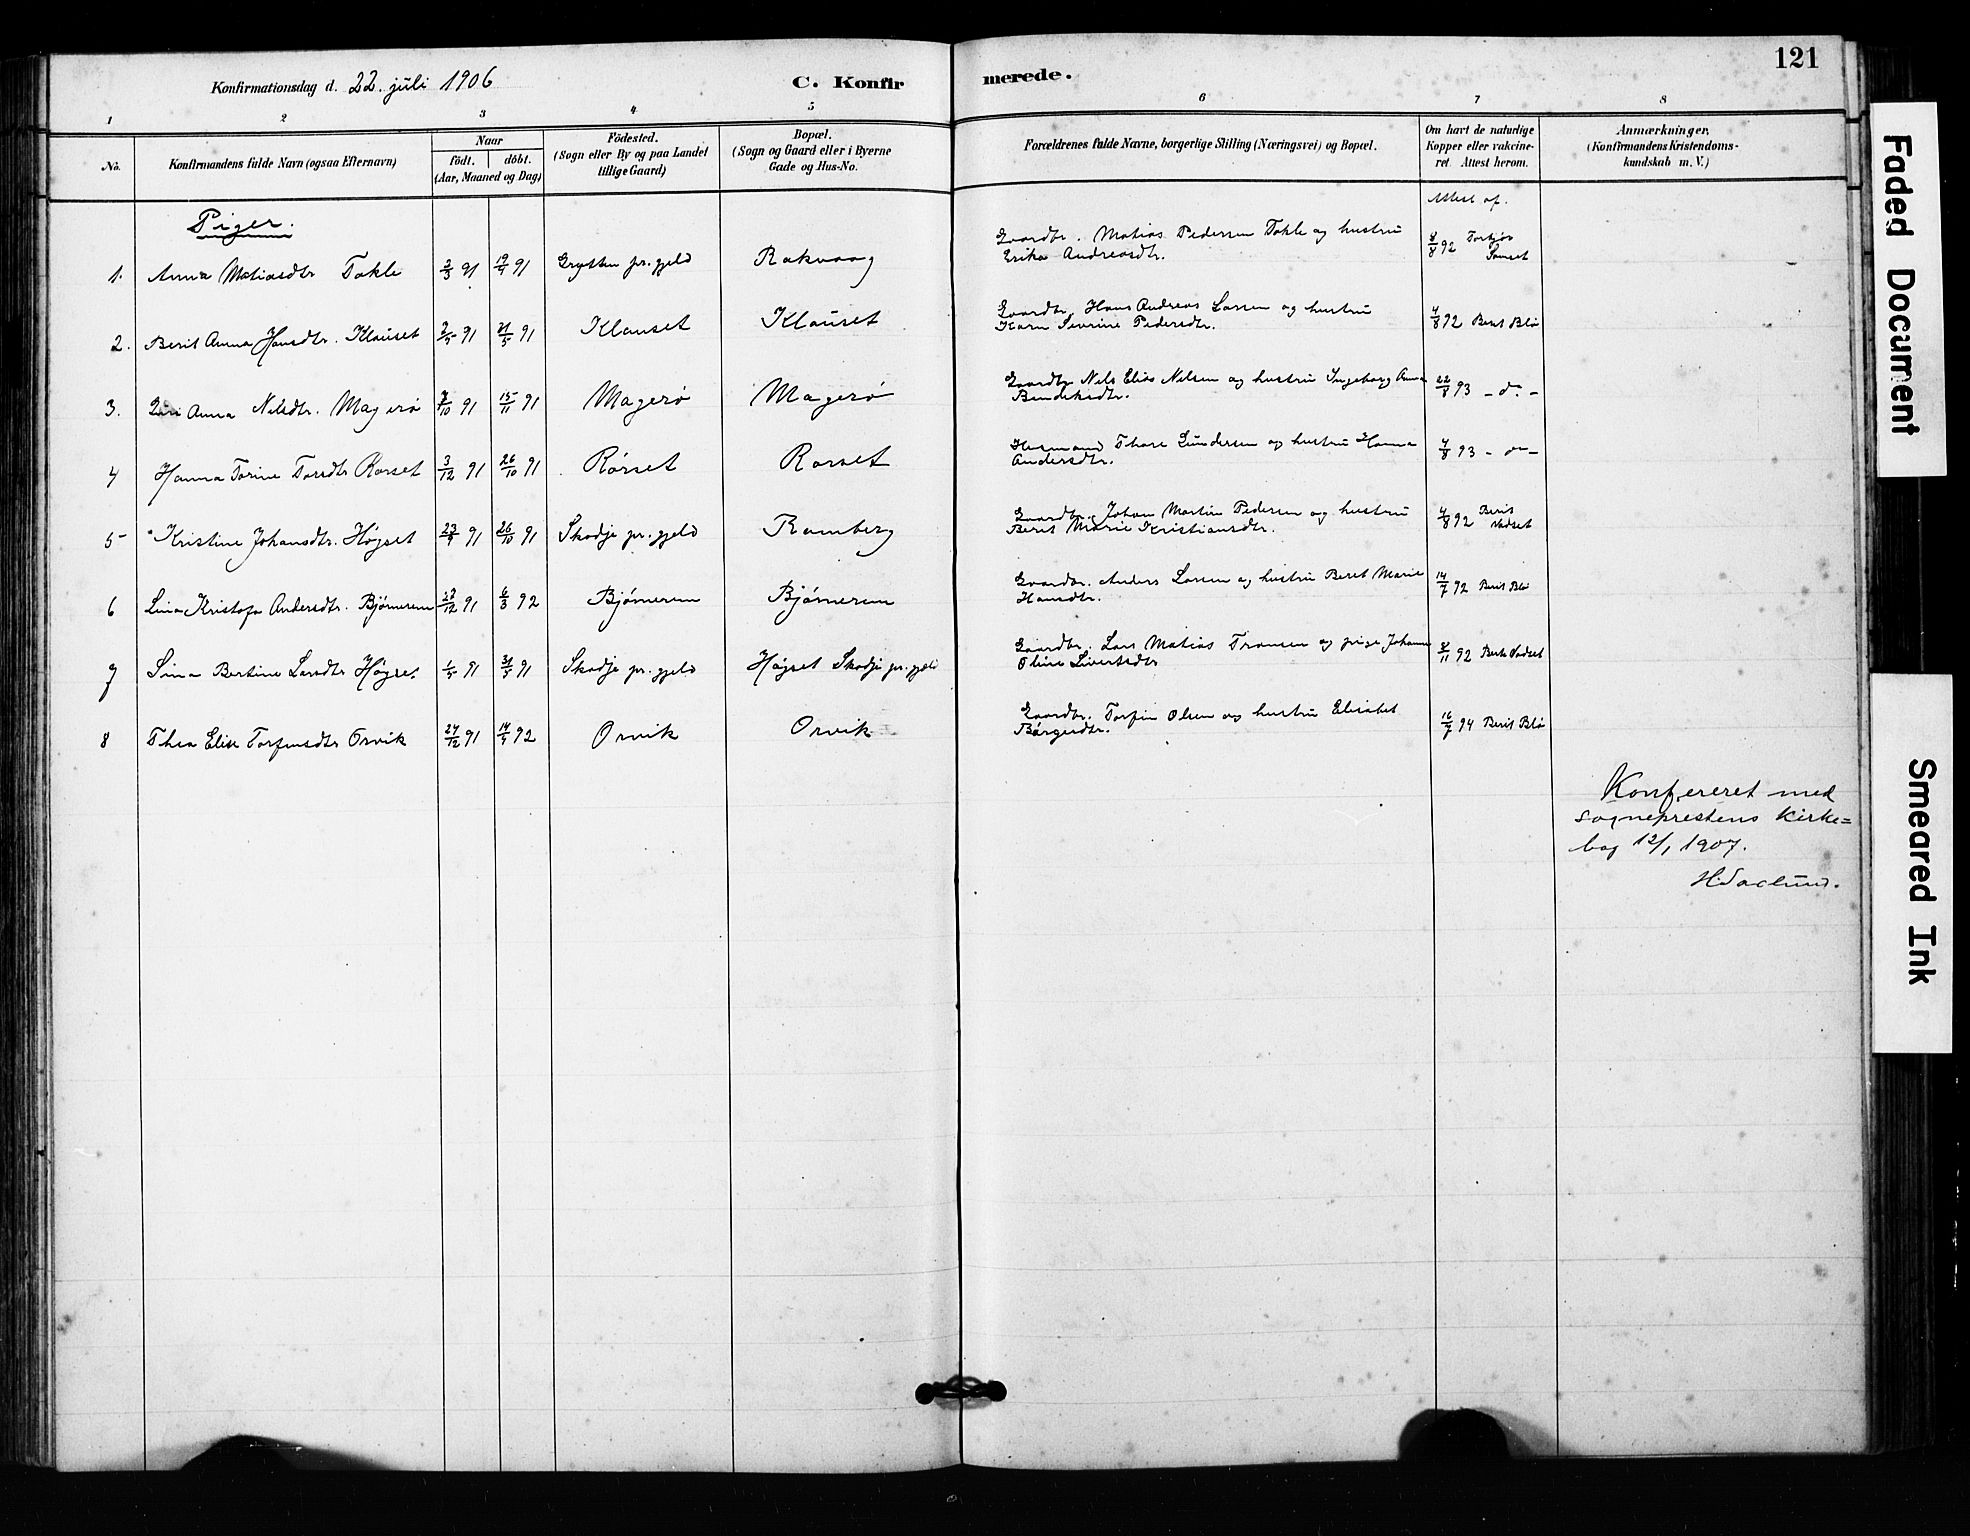 121
Konfirmationsdag d. 22. juli 1906
C. Konfirmerede.
1 2 3 4 5 6 7 8
No.
Konfirmandens fulde Navn (ogsaa Efternavn)
Naar
födt. döbt.
(Aar, Maaned og Dag)
Födested.
(Sogn eller By og paa Landet
tillige Gaard)
Bopæl.
(Sogn og Gaard eller i Byerne
Gade og Hus-No.
Forældrenes fulde Navne, borgerlige Stilling (Næringsvei) og Bopæl.
Om havt de naturlige
Kopper eller vakcine-
ret. Attest herom.
Anmærkninger,
(Konfirmandens Kristendoms-
kundskab m. V.)
Attest af.
Piger.
1. Anna Matiasdtr Takle 2/3 91 19/4 91 Grytten pr. gjeld Rakvaag
Gaardbr. Matias Pedersen Takle og hustru
Erika Andreasdtr.
8/8 92
2. Berit Anna Hansdtr. Klauset 2/5 91 21/5 91 Klauset Klauset
Gaardbr. Hans Andreas Larsen og hustru
Karn Sevrine Pedersdtr.
4/8 92 Berit Blø
3. Anna Nilsdtr. Magerø 91 15/11 91 Magerø Magerø
Gaardbr. Nels Elias Nilsen og hustru Ingeborg Anna
22/8 93 - do. -
4 Hanna Torine Rørset 3/12 91 26/10 91 Rørset Rørset
Husmand og hustru Hanna
Andersdtr.
4/8 93 - do -
5 Kristine Johansdtr. Høgset 91 26/10 91 Skodje pr. gjeld Ramberg
Gaardbr. Johan Martin Pedersen og hustru
Berit Marie Kristiansdtr.
4/8 92 Berit
Vadset
6 Lina Kristofa Andersdtr. Bjørnerem 28/12 91 6/3 92 Bjørnerem Bjørnerem
Gaardbr. Anders Larsen og hustru Beret Marie
Hansdtr.
14/7 92 Berit Blø
7 Sina Bertine Larsdtr Høgset 1/5 91 31/5 91 Skodje pr. gjeld Høgset Skodje pr. gjeld
Gaardbr. Lars Matias Transen og pige Johanne
Oline Sivertsdtr
8/11 92 Berit Vadset
8 Thea Elise Torfinsdtr Orvik 27/12 91 14/4 92 Orvik Orvik
Gaardbr. Torfin Olsen og hustru Elisabet
Børgesdtr.
16/7 94 Berit Blø
Konfereret med
sogneprestens kirke=
bog 12/1 1907.
Faded Document
Smeared Ink